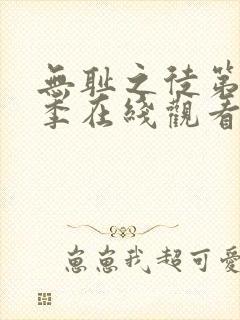 無耻之徒第
季在綫觀看
崽崽我超可愛